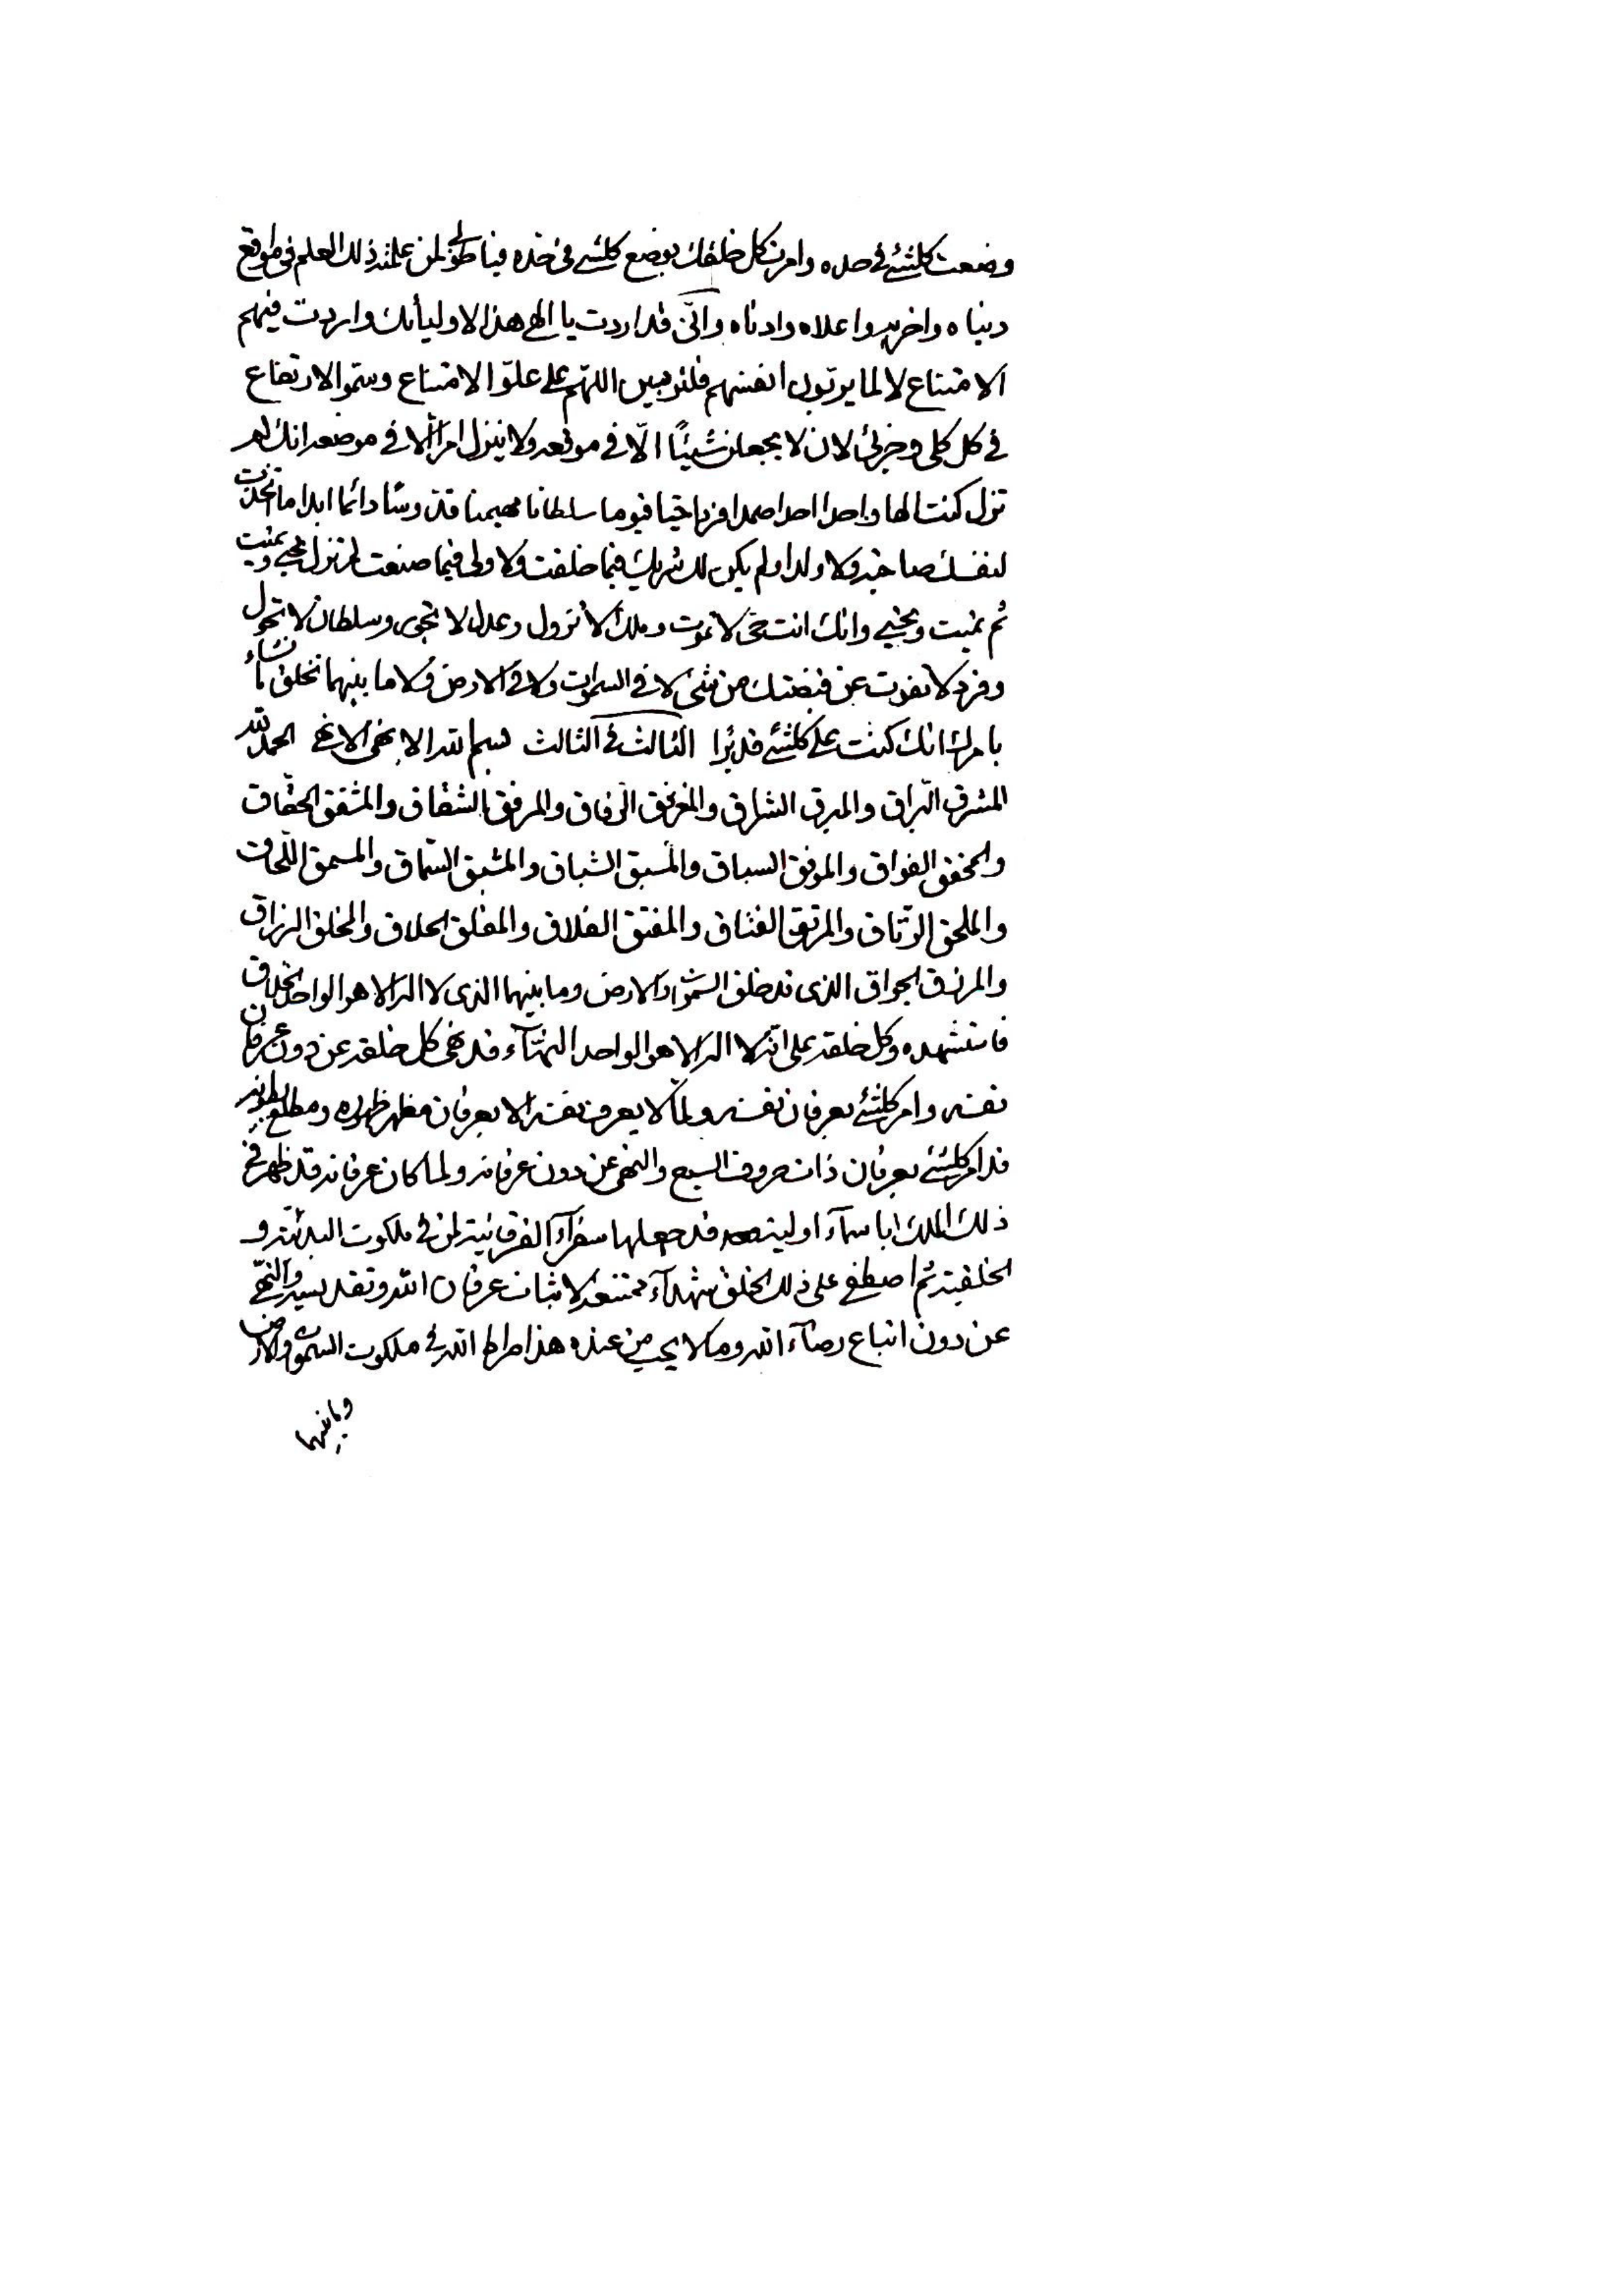 وضعت كلشئ في حده وامرت كل خلقك بوضع كلشئ في حده فيا طوبى لمن علمته ذلك العلم في مواقع
دنياه واخريه واعلاه وادناه وانّى قد اردت يا الهى هذا لاوليائك واردت فيهم
الامتناع لا لما يرتبون انفسهم فلتربين اللهم على علوّ الامتناع وسموّ الارتفاع
في كل كلى وجزئى لان لا يجعلن شيئًا الّا في موقعه ولا ينزل امرا الا في موضعه انك لم
تزل كنت الها واحدا احدا صمدا فردا حيا قيوما سلطانا مهيمنا قدوسًا دائما ابدا ما اتخذت
لنفسك صاحبة ولا ولدا ولم يكن لك شريك فيما خلقت ولا ولى فيما صنعت لم تزل تحيى وتميت
ثم تميت وتحيى وانك انت حى لا تموت وملك لا تزول وعدل لا تجور وسلطان لا تحول
وفرد لا يفوت عن قبضتك من شئ لا في السموات ولا في الارض ولا ما بينهما تخلق ما تشاء
بامرك انك كنت على كلشئ قديرًا الثالث في الثالث بسم الله الابهى الابهى الحمد لله
المشرق البراق والمبرق الشراق والمفرق الرفاق والمرفق الشفاق والمشفق الحقاق
والمحقق الفواق والموفق السباق والمسبق الشباق والمشبق السماق والمسمق اللحاق
والملحق الرتاق والمرتق الفتاق والمفتق الفلاق والمفلق الحلاق والمخلق الرزاق
والمرزق الجواق الذى قد خلق السموات والارض وما بينهما الذى لا اله الا هو الواحد الخلاق
فاستشهده وكل خلقه على انه لا اله الا هو الواحد النهآء قد نهى كل خلقه عن دون عرفان
نفسه وامر كلشئ بعرفان نفسه ولما لا يعرف نفسه الا بعرفان مظهر ظهوره ومطلع بطونه
قد امر كلشئ بعرفان ذات حروف السبع والنهى عن دون عرفانه ولما كان عرفانه قد ظهر في
ذلك الملك باسمآء اولية قد جعلها سفرآء الفرقانية لمن في ملكوت البدئية و
الخلقية ثم اصطفى على ذلك الخلق شهدآء ممتنعة لاثبات عرفان الله وتقديسه والنهى
عن دون اتباع رضآء الله وما لا يحب من عنده هذا صراط الله في ملكوت السموات والارض
وما بينهما